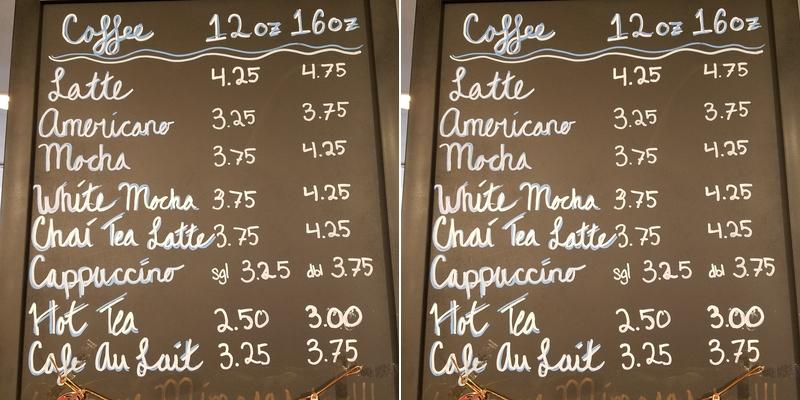 Coffee 12oz 16oz
Latte 4.25 4.75
Americano 3.25 3.75
Mocha 3.75 4.25
White Mocha 3.75 4.25
Chai Tea Latte 3.75 4.25
Cappuccino sgl 3.25 dbl 3.75
Hot Tea 2.50 3.00
Cafe Au Lait 3.25 3.75
Coffee 12oz 16oz
Latte 4.25 4.75
Americano 3.25 3.75
Mocha 3.75 4.25
White Mocha 3.75 4.25
Chai Tea Latte 3.75 4.25
Cappuccino sgl 3.25 dbl 3.75
Hot Tea 2.50 3.00
Cafe Au Lait 3.25 3.75